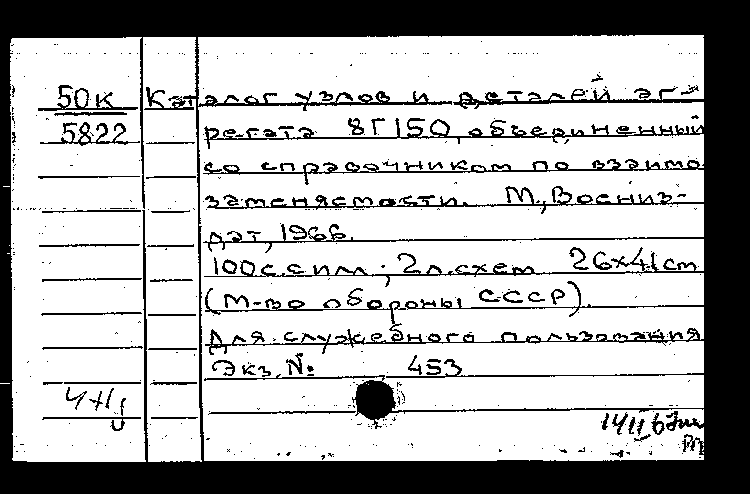 50к Каталог узлов и деталей аг-
5822 регата 8Г150, объединенный
со справочником по взаимо
заменяемости. М., Воениз-
дат, 1966.
100с.силл; 2л.схем 26х41cm
(М-во обороны СССР).
Для служебного пользования
Экз. № 453